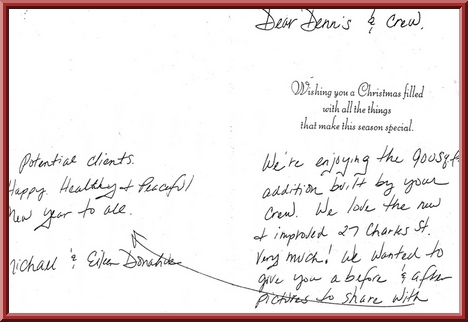 Dear Dennis & Crew.
Wishing you a Christmas filled
with all the things
that make this season special.
We're enjoying the 900sqft
addition built by your
crew. We love the new
& improved 27 Charles St.
Very much! We wanted to
give you a before & after
pictures to share with
potential clients.
Happy, Healthy & Peaceful
New Year to all.
Michael & Eileen Donahue